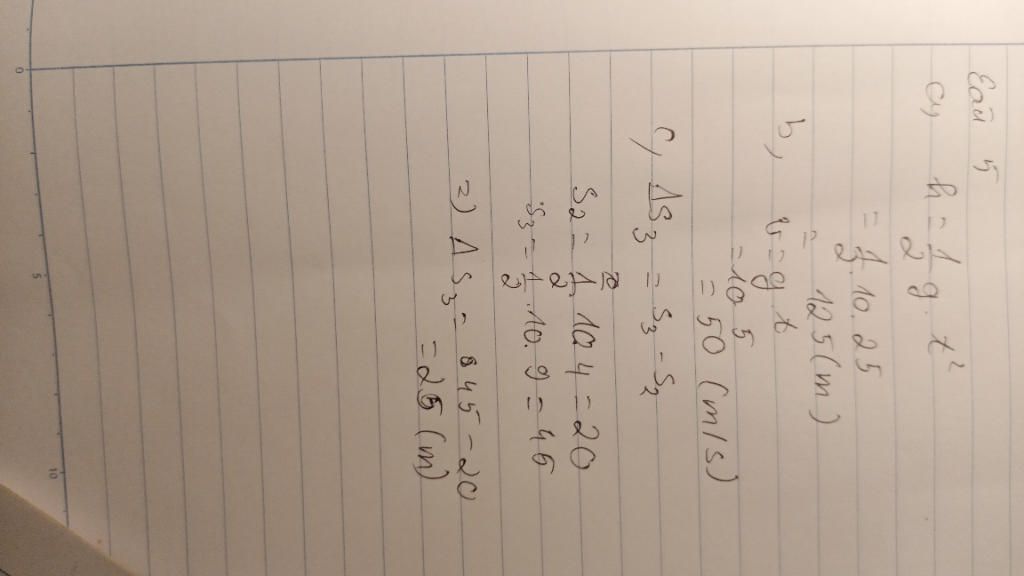 Bài 5
a, h = 1/2 g. t²
= 1/2 . 10. 25
= 125 (m)
b, v = g. t
= 10 5
= 50 (m/s)
c, ΔS₃ = S₃ - S₂
S₂ = 1/2. 10 4 = 20
S₃ = 1/2 .10. 9 = 45
=) ΔS₃ = 45 - 20
= 25 (m)
0
5
10